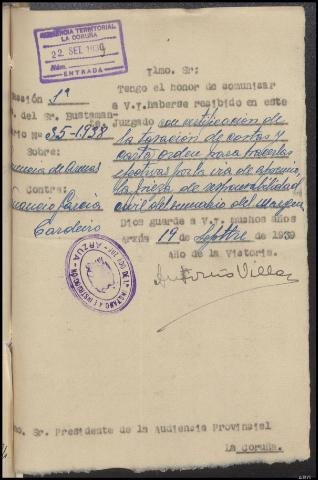 AUDIENCIA TERRITORIAL
LA CORUÑA
22 SET. 1939
Núm.
ENTRADA
Ilmo. Sr:
Tengo el honor de comunicar
a V.I. haberse recibido en este
Juzgado con certificación de
la tasación de costas y
carta orden para hacerlas
efectivas por la vía de apremio,
la pieza de responsabilidad
civil del sumario del margen
Dios guarde a V.I. muchos años
Arzúa 19 de Septbre de 1939
Año de la Victoria.
Antonio Villar
cción 1ª
. del Sr. Bustaman-
rio Nº 35-1938
Sobre:
nencia de armas
Contra:
García
Cordeiro
ARZUA
mo. Sr. Presidente de la Audiencia Provincial
La Coruña.